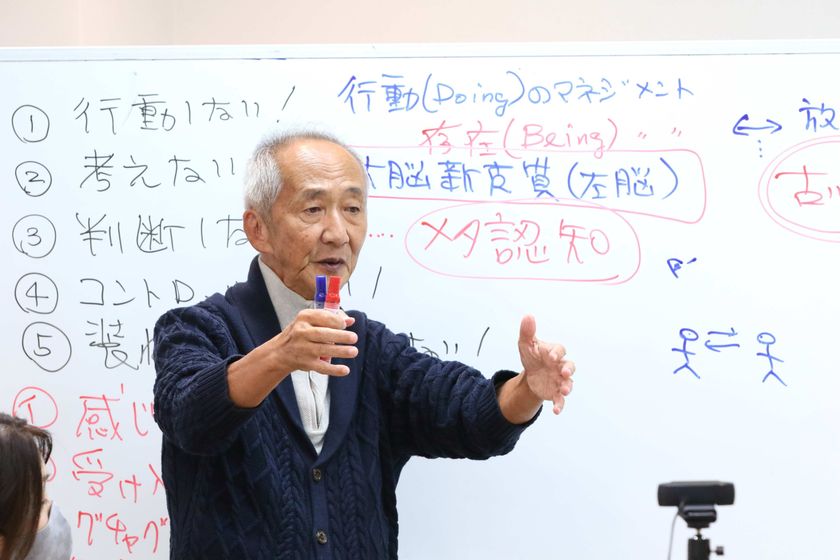 ① 行動しない!
② 考えない
③ 判断しな
④ コントロ
⑤ 装
① 感じ
受け入
グチャグ
行動(Doing)のマネジメント
存在(Being) 〃 〃
脳新皮質(左脳)
…… メタ認知
↔ 放
古